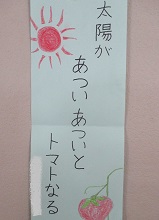 太陽が
あついあついと
トマトなる